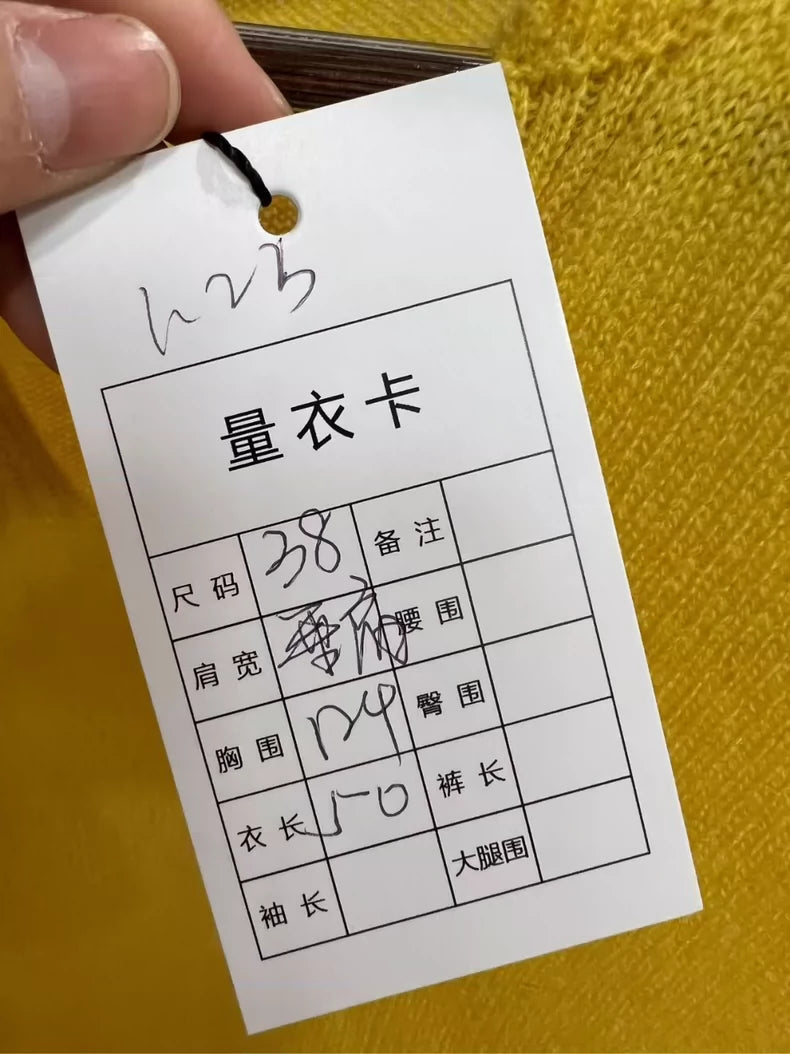 量衣卡
尺码 38 备注
肩宽 垂肩 腰围
胸围 124 臀围
衣长 50 裤长
袖长 大腿围